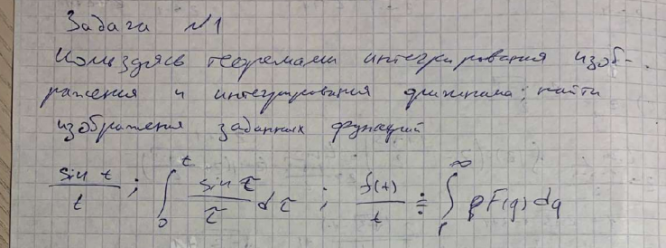 Задача №1
Пользуясь теоремами интегрирования изоб-
ражения и интегрирования оригинала; найти
изображения заданных функций
sin t / t ; ∫₀ᵗ sin τ / τ dτ ; f(t) / t ≑ ∫ₚ^∞ F(q) dq